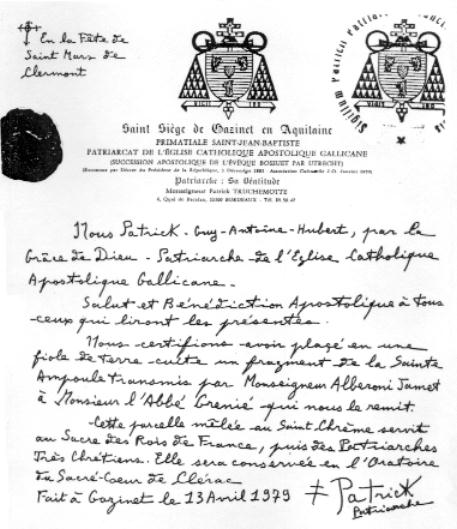 En la Fête de
Saint Mars de
Clermont
Saint Siège de Gazinet en Aquitaine
PRIMATIALE SAINT-JEAN-BAPTISTE
PATRIARCAT DE L'ÉGLISE CATHOLIQUE APOSTOLIQUE GALLICANE
(SUCCESSION APOSTOLIQUE DE L'ÉVÊQUE BOSSUET PAR UTRECHT)
Patriarche : Sa Béatitude
Monseigneur Patrick TRUCHEMOTTE
4, Quai de Bacalan, 33300 BORDEAUX - Tél.
Nous Patrick - Guy-Antoine-Hubert, par la
Grâce de Dieu - Patriarche de l'Eglise Catholique
Apostolique Gallicane -
Salut et Bénédiction Apostolique à tous
ceux qui liront les présentes.
Nous certifions avoir placé en une
fiole de terre cuite un fragment de la Sainte
Ampoule transmis par Monseigneur Alberoni Jamet
à Monsieur l'Abbé Grenié qui nous le remit.
Cette parcelle mêlée au Saint Chrème servit
au Sacre des Rois de France, puis des Patriarches
Très Chrétiens. Elle sera conservée en l'Oratoire
du Sacré-Coeur de Clérac
Fait à Gazinet le 13 Avril 1979 ‡ Patrick
Patriarche